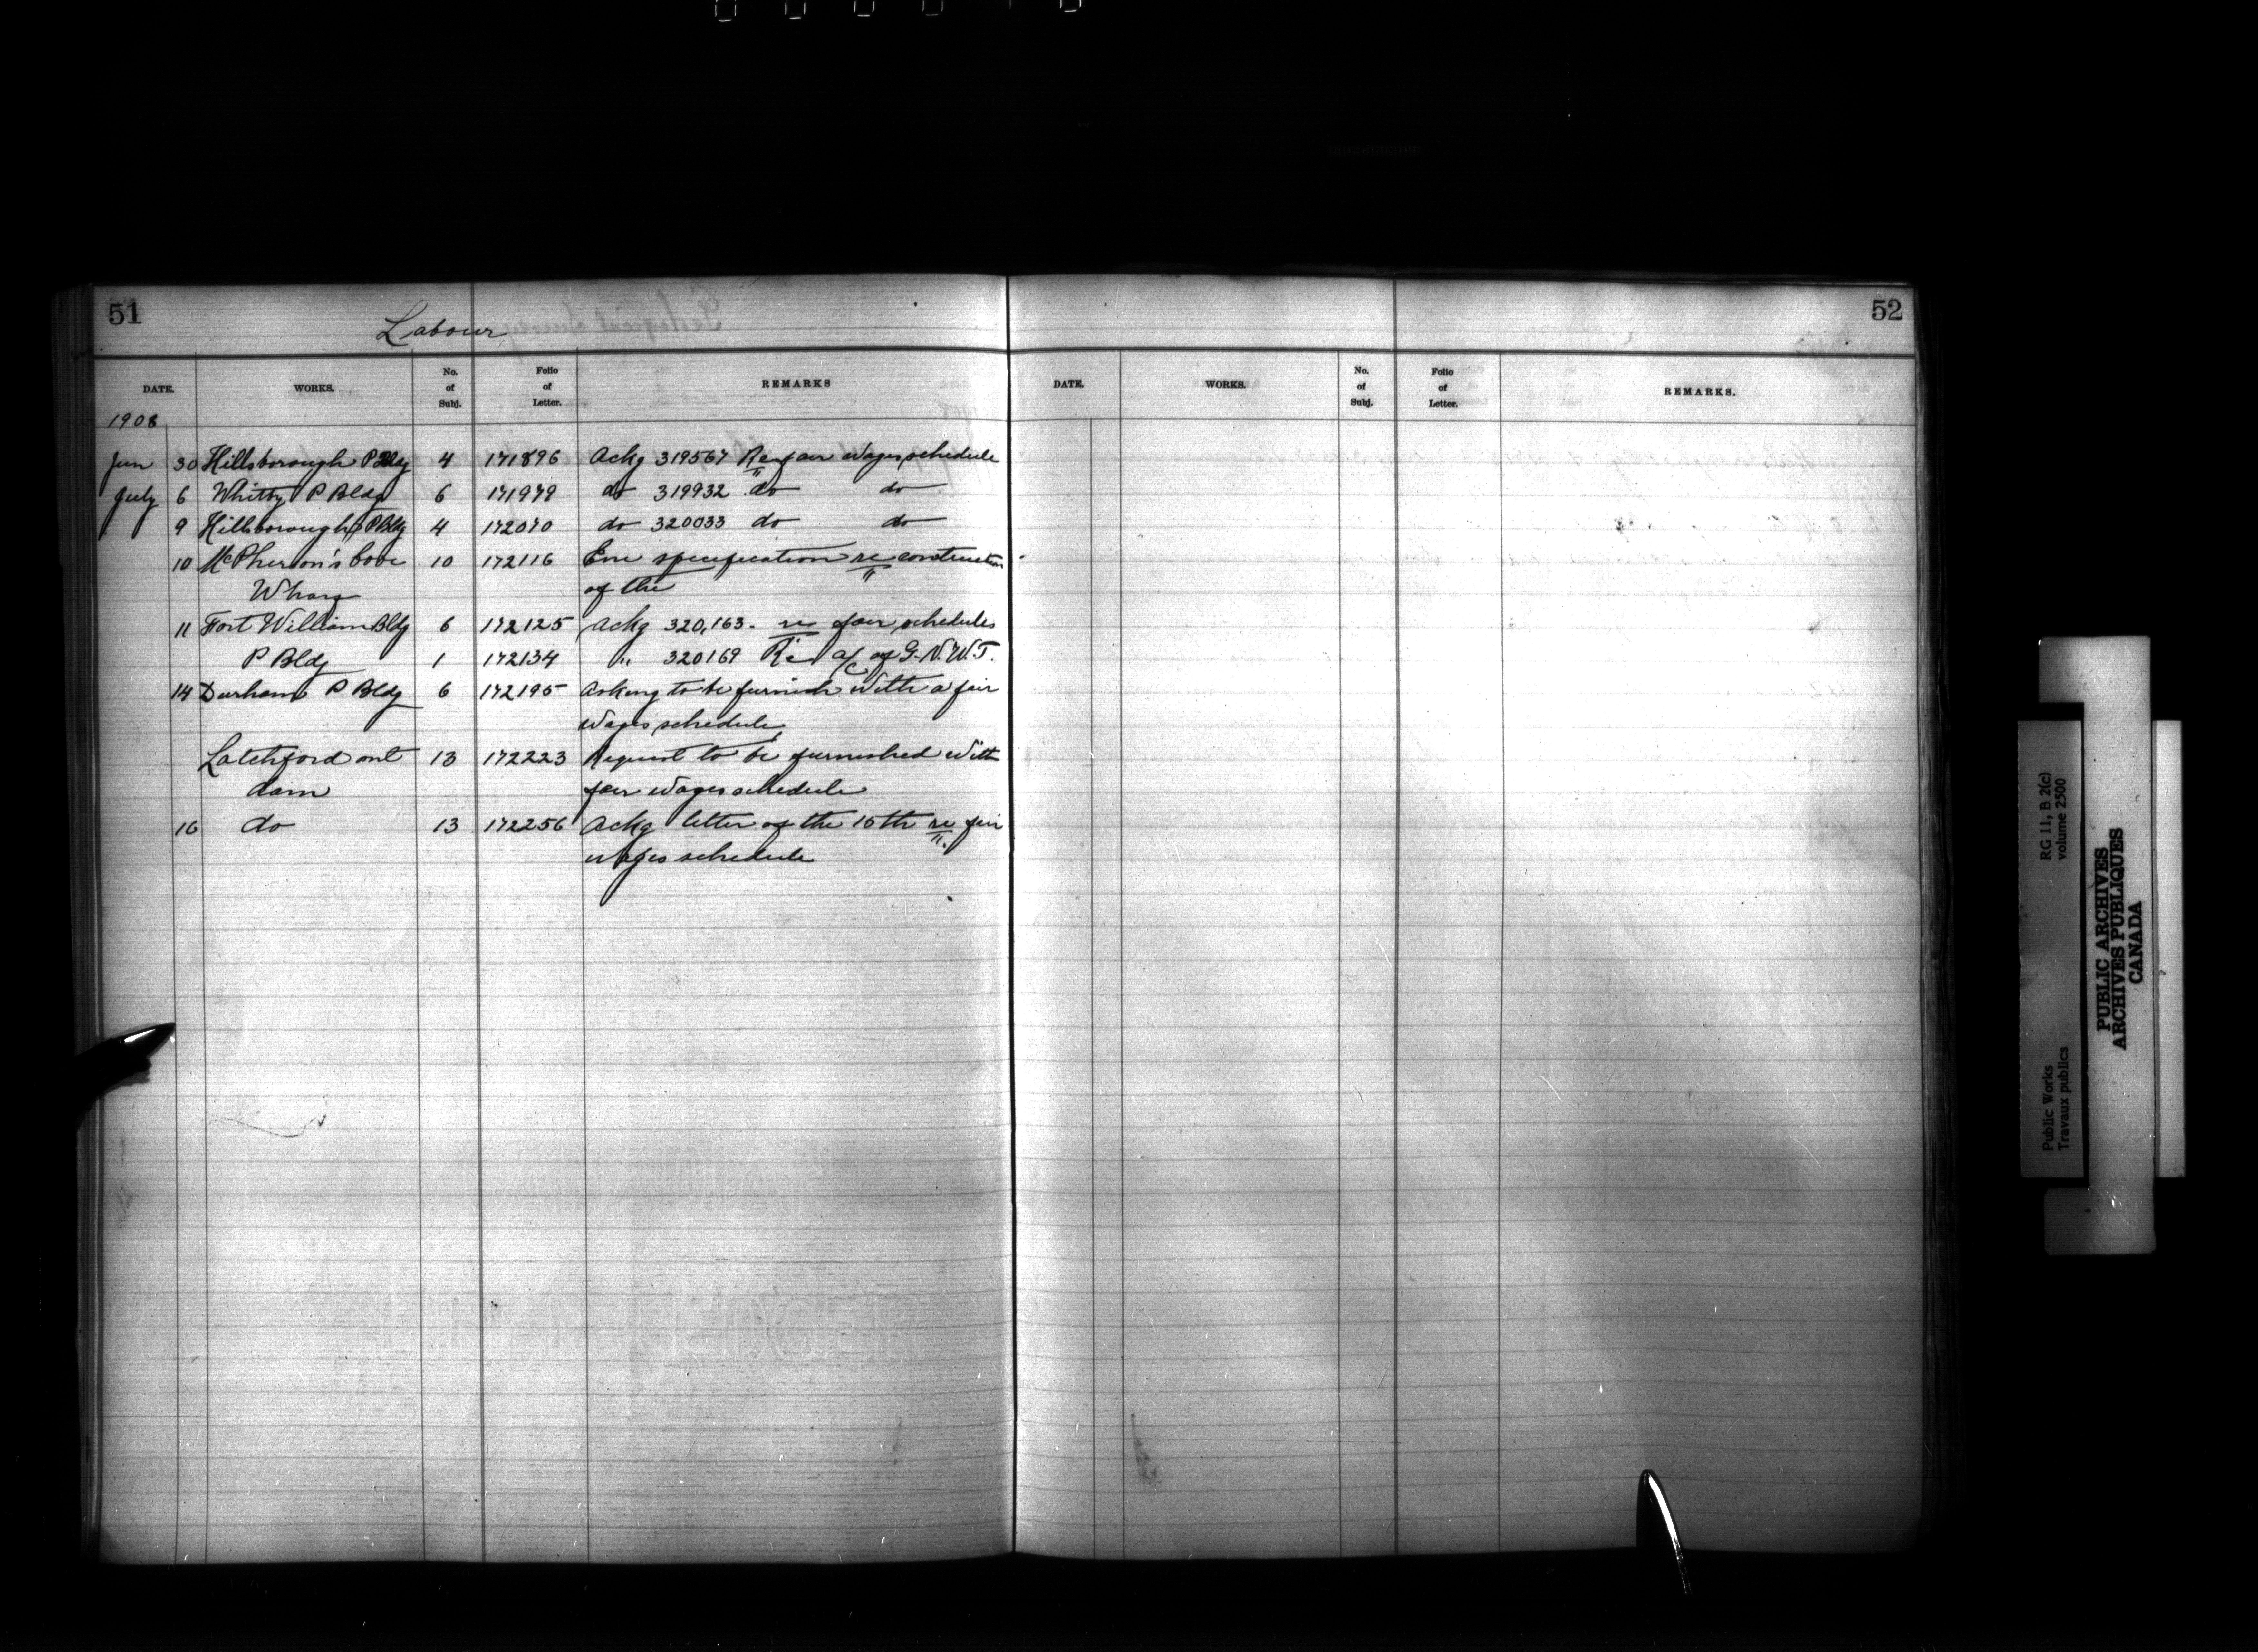 51
Labour
DATE. WORKS. No. of Subj. Folio of Letter. REMARKS
1908
Jun 30 Hillsborough P Bldg 4 171896 Ackg 319567 Re fair wages schedule
July 6 Whitby P Bldg 6 171979 do 319932 do do
9 Hillsborough P Bldg 4 172070 do 320033 do do
10 McPherson's Cove 10 172116 Enc specification re construction
Wharf of the
11 Fort William Bldg 6 172125 Ackg 320,163. re fair schedules
P Bldg 1 172134 " 320169 Re a/c of G.N.W.T.
14 Durham P Bldg 6 172195 Asking to be furnish with a fair
wages schedule
Latchford ont 13 172223 Request to be furnished with
dam fair wages schedule
16 do 13 172256 Ackg letter of the 15th re fair
wages schedule
52
DATE. WORKS. No. of Subj. Folio of Letter. REMARKS.
Public Works
Travaux publics
RG 11, B 2(c)
volume 2500
PUBLIC ARCHIVES
ARCHIVES PUBLIQUES
CANADA